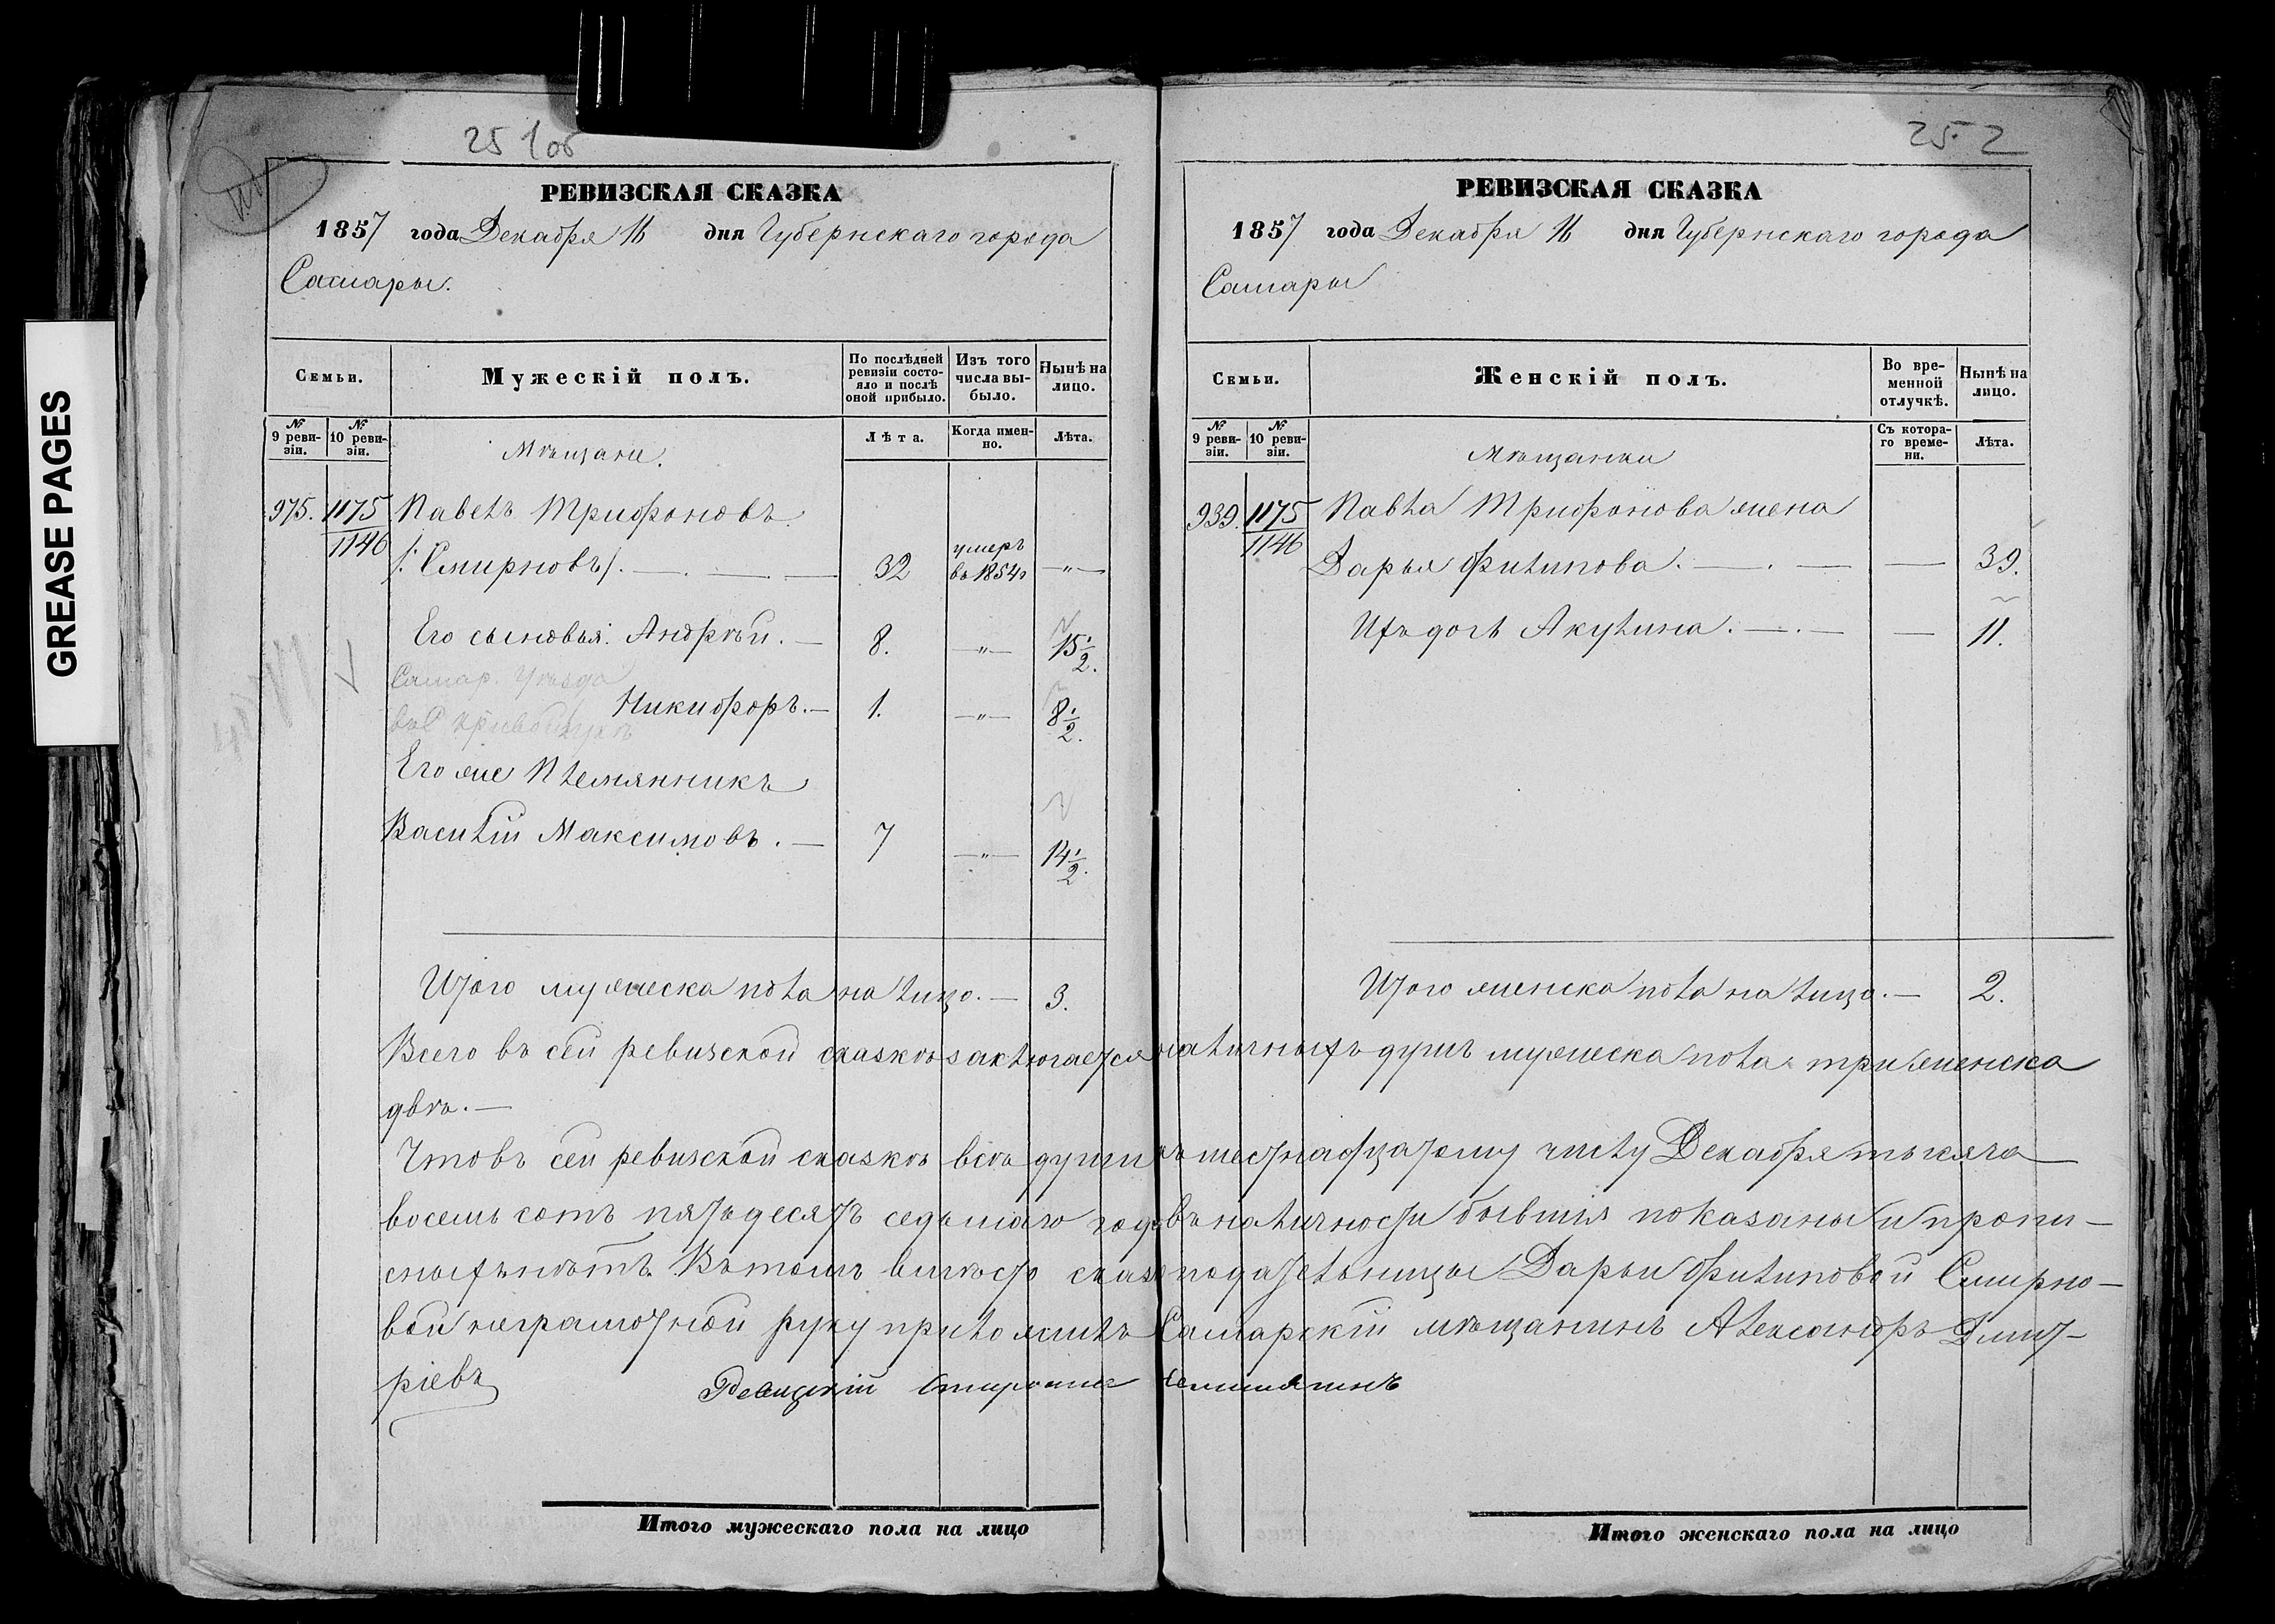 GREASE PAGES
251 об
РЕВИЗСКАЯ СКАЗКА
1857 года Декабря 16 дня Губернскаго города
Самары.
Семьи.
Мужескій полъ.
По послѣдней ревизіи состояло и послѣ оной прибыло.
Изъ того числа выбыло.
Нынѣ на лицо.
№ 9 ревизіи.
№ 10 ревизіи.
Лѣта.
Когда именно.
Лѣта.
Мѣщане.
975. 1175/1146 Павелъ Трифоновъ
/:Смирновъ/. — 32 умеръ въ 1854г —"—
Его сыновья: Андрѣй. — 8. —"— 15 1/2.
Самар. Уѣзда
Никифоръ. — 1. —"— 8 1/2.
Его же Племянникъ
Василій Максимовъ. — 7 —"— 14 1/2.
Итого мужеска пола на лицо. — 3.
252
РЕВИЗСКАЯ СКАЗКА
1857 года Декабря 16 дня Губернскаго города
Самары
Семьи.
Женскій полъ.
Во временной отлучкѣ.
Нынѣ на лицо.
№ 9 ревизіи.
№ 10 ревизіи.
Съ котораго времени.
Лѣта.
Мѣщанки
939. 1175/1146 Павла Трифонова жена
Дарья Филипова. — — 39.
Ихъ дочь Акулина. — — 11.
Итого женска пола на лицо. — 2.
Всего въ сей ревизской сказкѣ заключается наличныхъ душъ мужеска пола три женска
двѣ. —
Что въ сей ревизской сказкѣ всѣ души къ шестнадцатому числу Декабря тысяча
восемь сотъ пятьдесятъ седьмаго года въ наличности бывшія показаны и пропи-
сныхъ нѣтъ. Въ томъ вмѣсто сказкоподательницы Дарьи Филиповой Смирно-
вой неграмотной руку приложилъ Самарскій мѣщанинъ Александръ Дмит-
ріевъ
Ревизскій Староста
Итого мужескаго пола на лицо
Итого женскаго пола на лицо